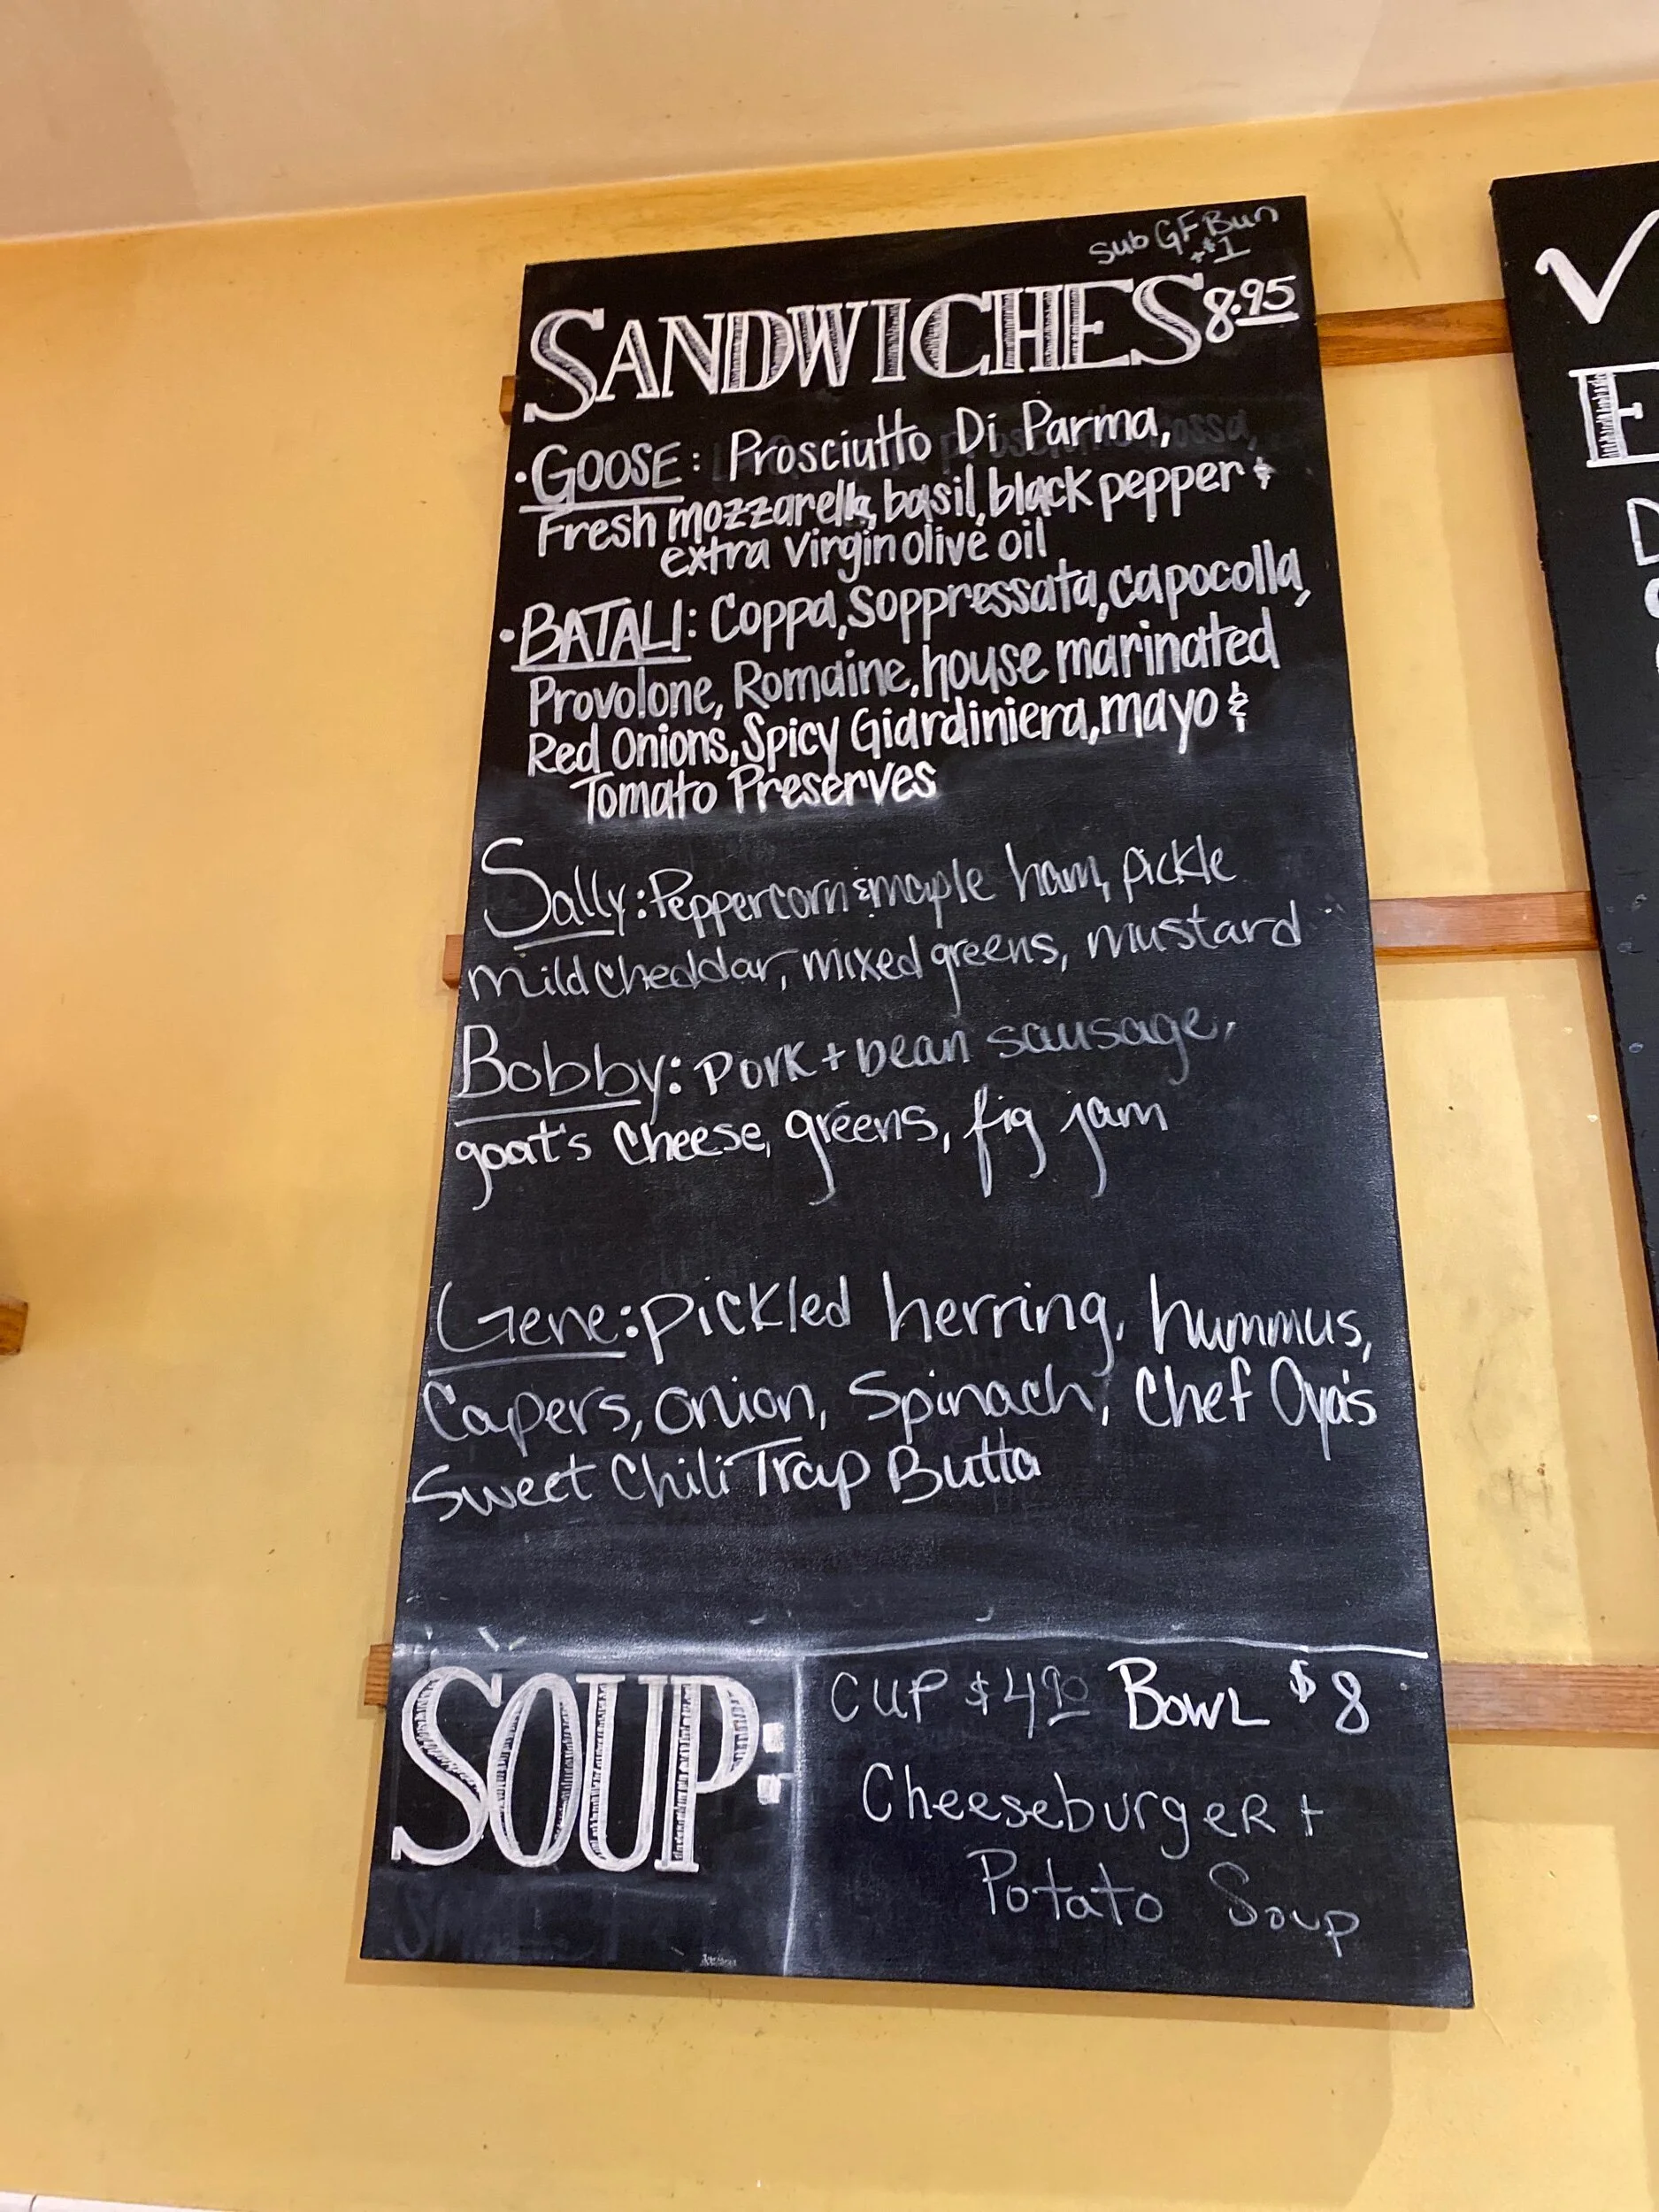 Sub GF Bun
+$1
SANDWICHES 8.95
• GOOSE: Prosciutto Di Parma,
Fresh mozzarella, basil, black pepper &
extra virgin olive oil
• BATALI: Coppa, Soppressata, capocolla,
Provolone, Romaine, house marinated
Red Onions, Spicy Giardiniera, mayo &
Tomato Preserves
Sally: Peppercorn & maple ham, pickle
mild cheddar, mixed greens, mustard
Bobby: Pork + bean sausage,
goat's cheese, greens, fig jam
Gene: pickled herring, hummus,
Capers, onion, Spinach, Chef Oya's
Sweet Chili Trap Butta
SOUP:
CUP $4.90 BOWL $8
Cheeseburger +
Potato Soup